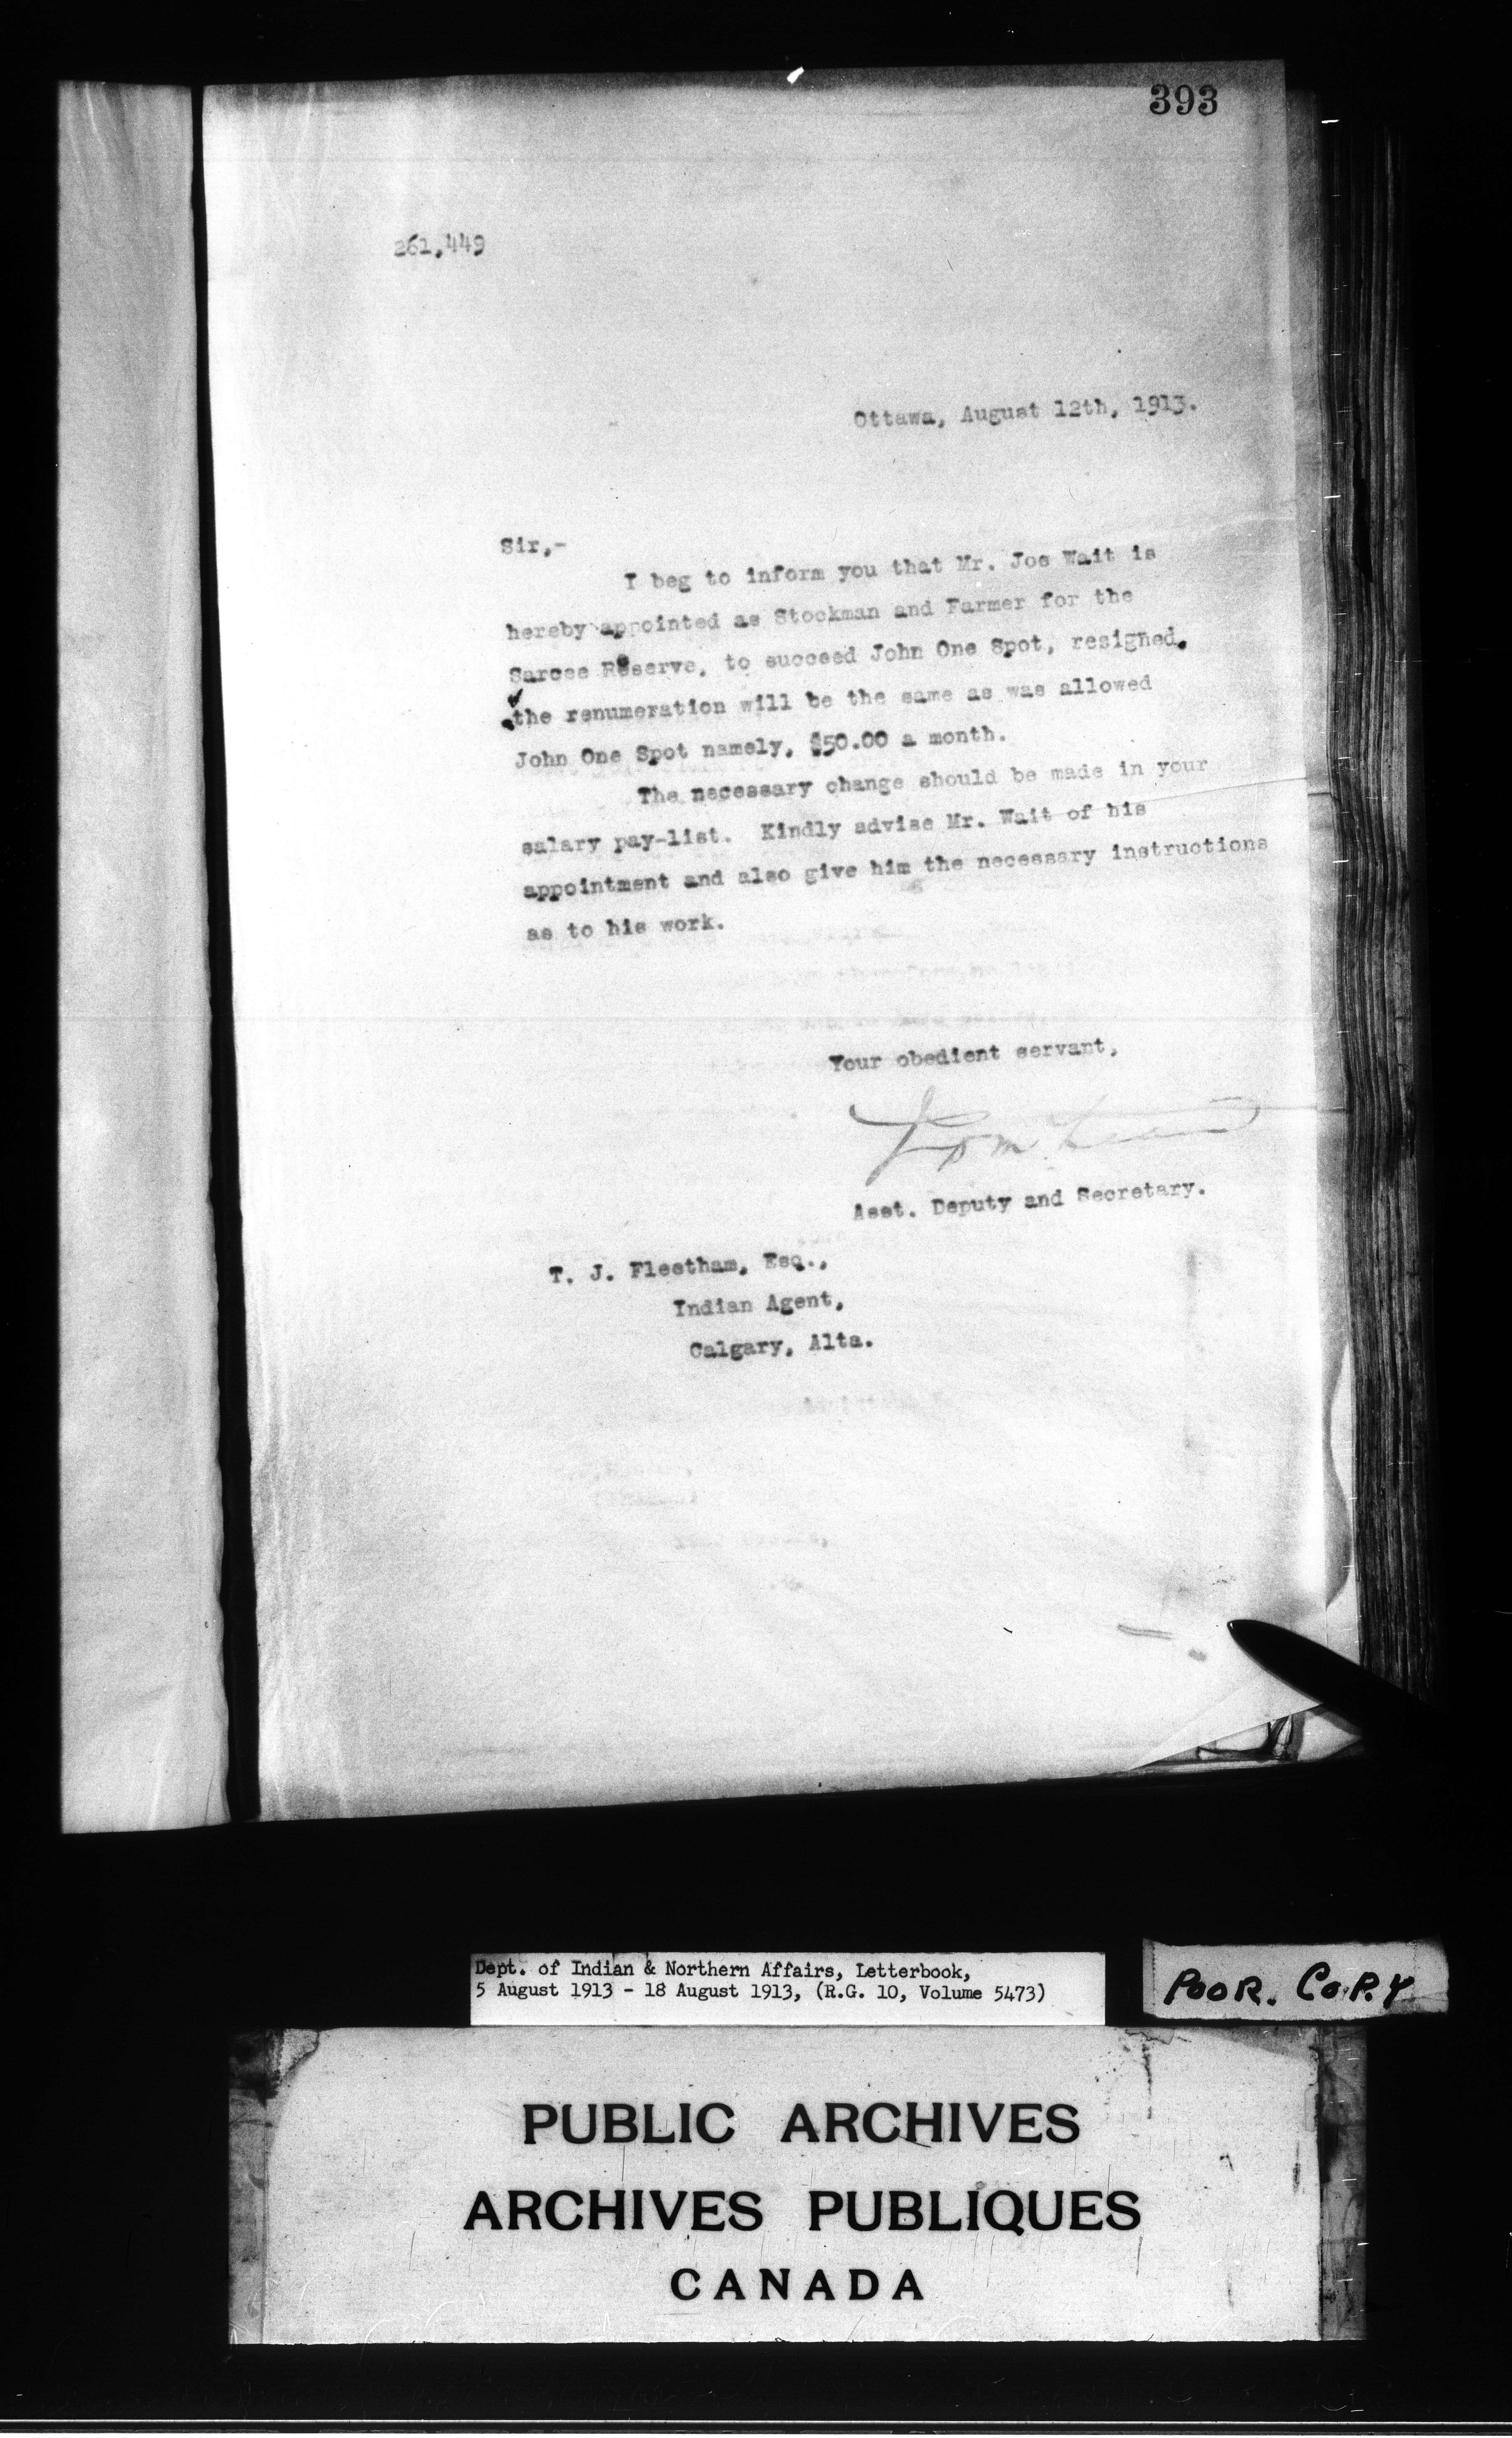 393
261,449
Ottawa, August 12th, 1913.
Sir,-
I beg to inform you that Mr. Joe Wait is
hereby appointed as Stockman and Farmer for the
Sarcee Reserve, to succeed John One Spot, resigned.
the renumeration will be the same as was allowed
John One Spot namely, $50.00 a month.
The necessary change should be made in your
salary pay-list. Kindly advise Mr. Wait of his
appointment and also give him the necessary instructions
as to his work.
Your obedient servant,
Asst. Deputy and Secretary.
T. J. Fleetham, Esq.,
Indian Agent,
Calgary, Alta.
Dept. of Indian & Northern Affairs, Letterbook,
5 August 1913 - 18 August 1913, (R.G. 10, Volume 5473)
POOR. COPY
PUBLIC ARCHIVES
ARCHIVES PUBLIQUES
CANADA